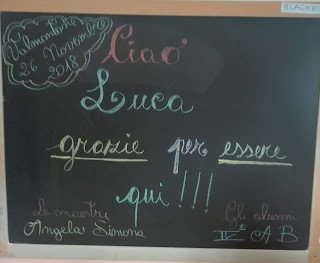 BLACKBO
Valmontone
26 Novembre
2018
Ciao
Luca
grazie per essere
qui!!!
Le maestre
Angela Simona
Gli alunni
IVe A B